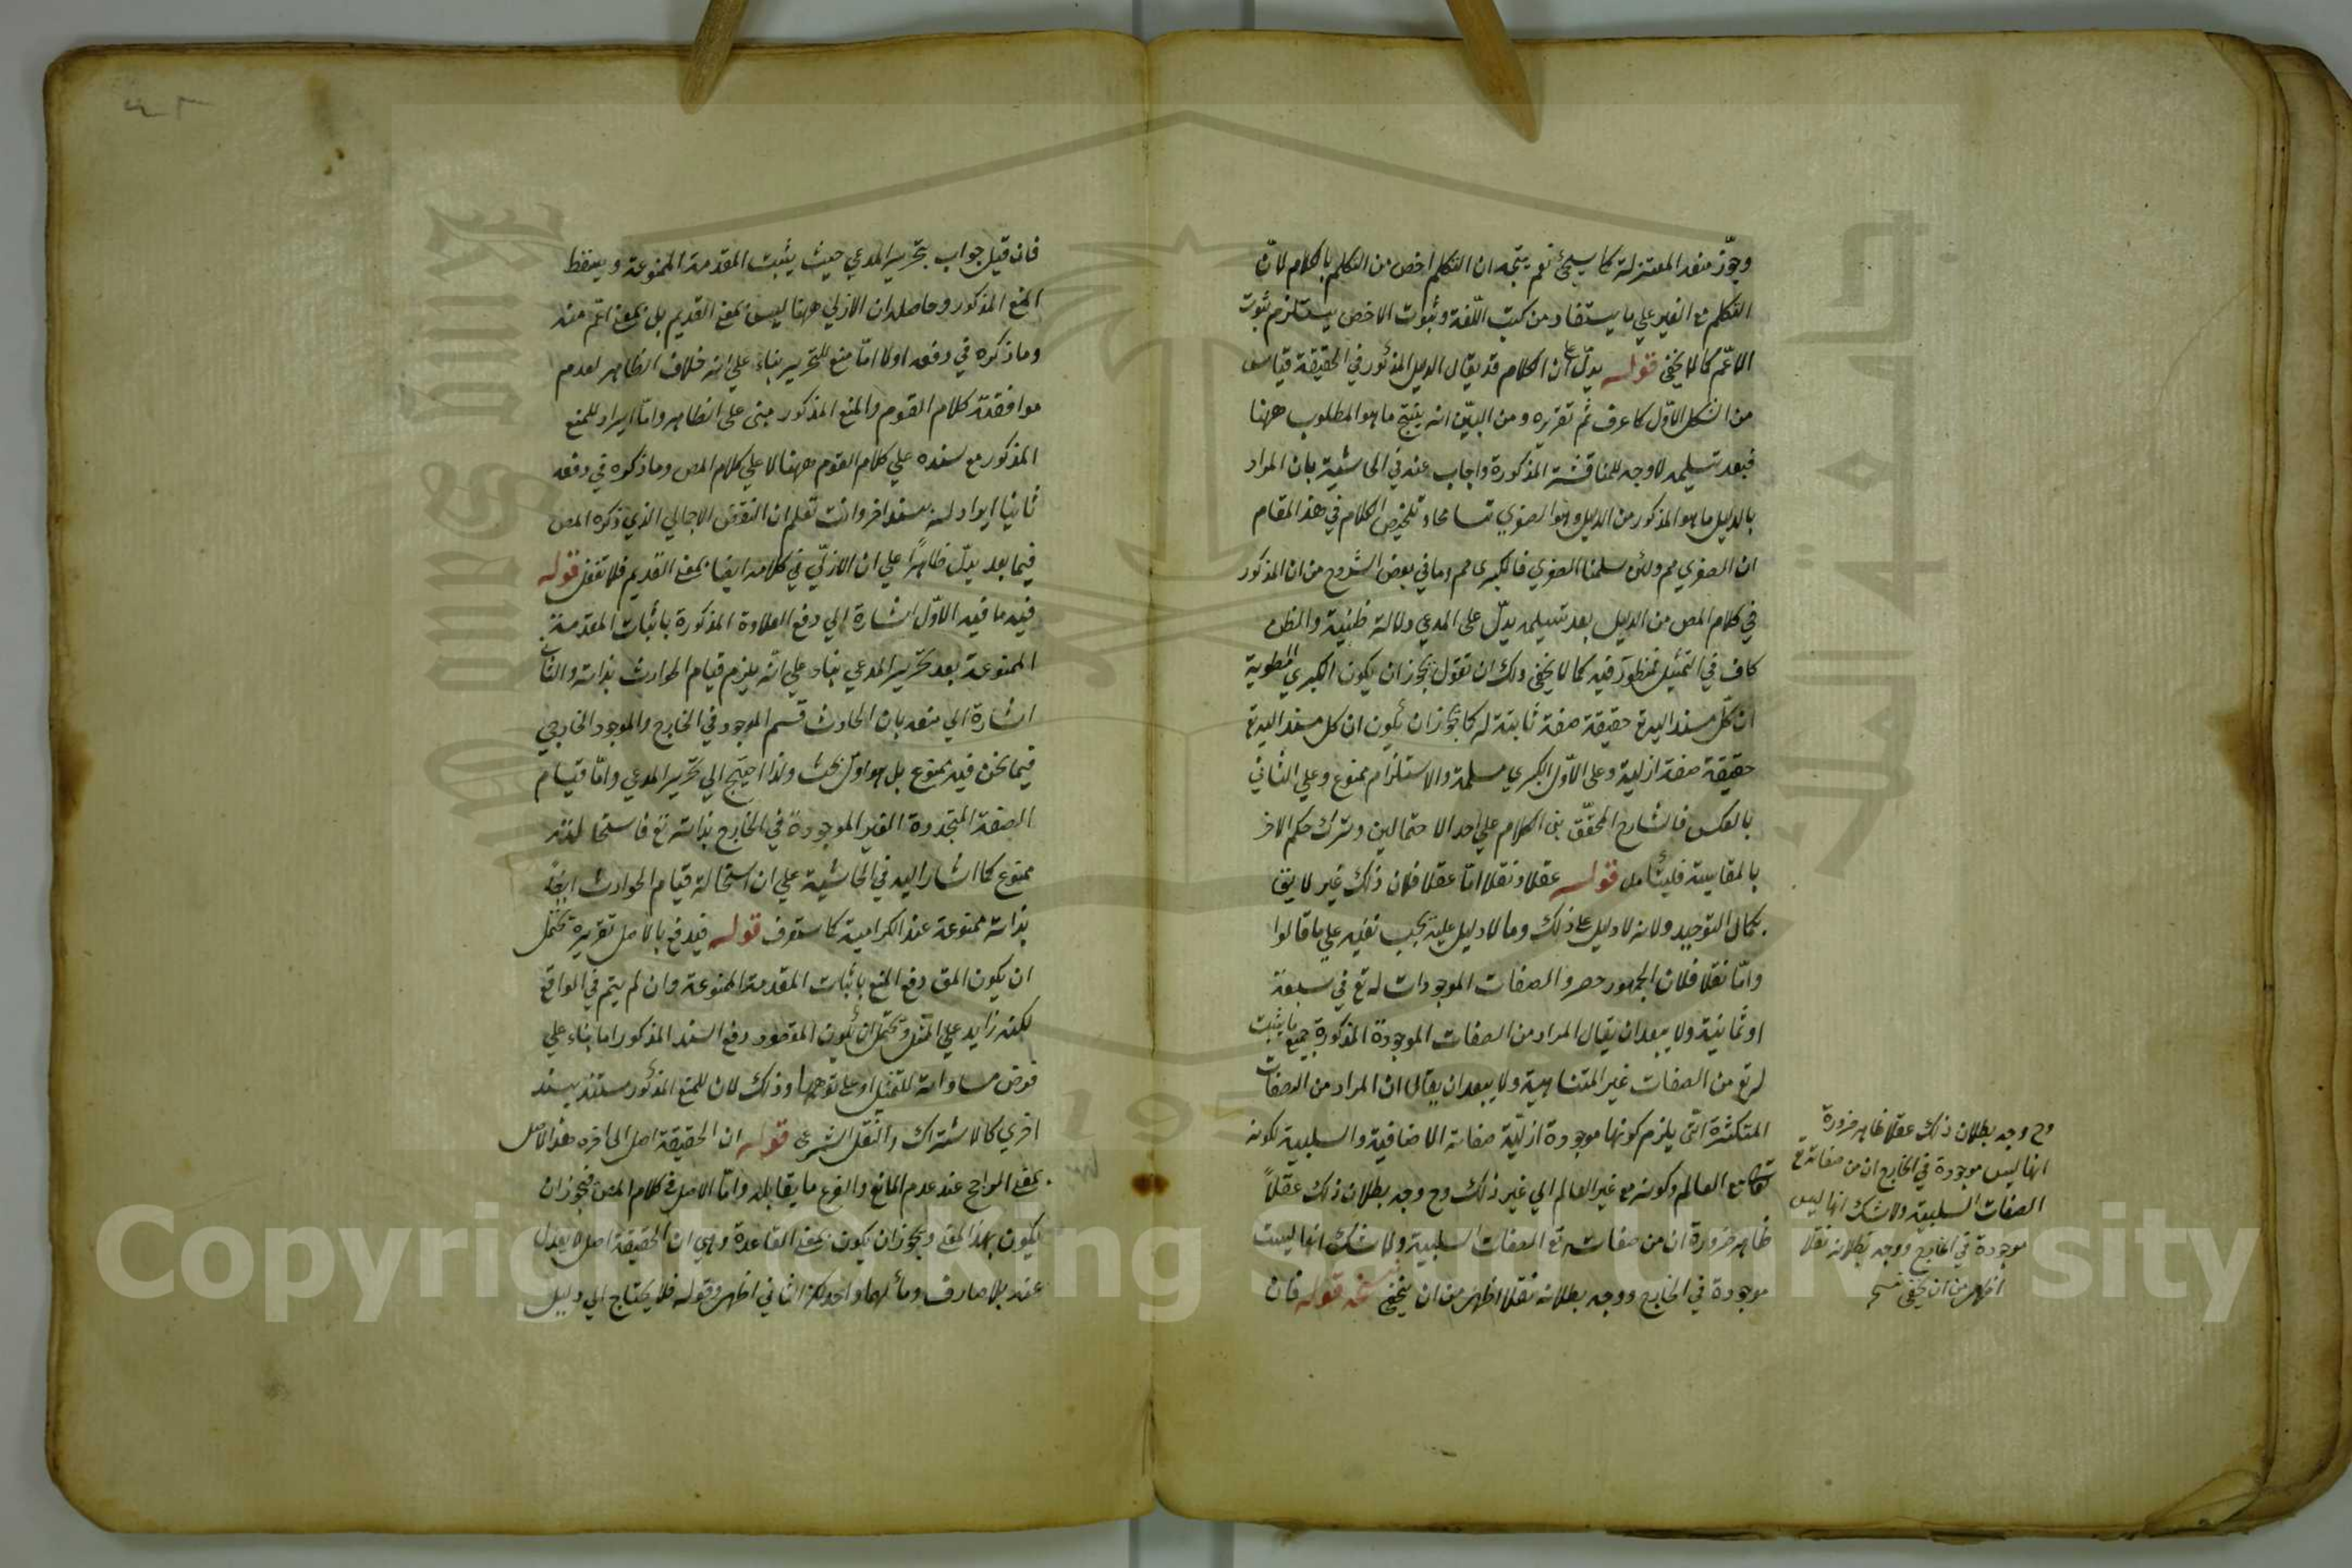 وجوّز منعه المعتزلة كما سيجئ نعم يتجه ان التكلم اخص من التكلم بالكلام لانّ
التكلم مع الغير علي ما يستفاد من كتب اللّغة وثبوت الاخص يستلزم ثبوت
الاعّم كما لا يخفى قوله يدلّ علي ان الكلام قد يقال الدليل المذكور في الحقيقة قياس
من الشكل الاوّل كما عرف ثم تقريره ومن البيّن انه ينتج ما هو المطلوب ههنا
فبعد تسليمه لا وجه للمناقشة المذكورة واجاب عنه في الحاشية بان المراد
بالدليل ما هو المذكور من الدليل وهو الصغري تسامحا وتلخيص الكلام في هذ المقام
ان الصغري مم ولئن سلمنا الصغري فالكبرى مم وما في بعض الشروح من ان المذكور
في كلام المص من الدليل بعد تسليمه يدلّ على المدعي دلالة ظنية والظن
كاف في التمثيل منظور فيه كما لا يخفى ولك ان تقول يجوز ان يكون الكبري المطوية
ان كلّ مسند اليه تع حقيقة صفة ثابتة له كما يجوز ان يكون ان كل مسند اليه تع
حقيقة صفة ازلية وعلى الاوّل الكبري مسلمة والاستلزام ممنوع وعلي الثاني
بالعكس فالشارح المحقّق بنى الكلام علي احد الاحتمالين وترك حكم الاخر
بالمقايسة فليتأمل قوله عقلا ونقلا امّا عقلا فلان ذلك غير لايق
بكمال التوحيد ولانه لا دليل علي ذلك وما لا دليل عليه يجب نفيه علي ما قالوا
وامّا نقلا فلان الجمهور حصروا الصفات الموجودات له تع في سبعة
او ثمانية ولا يبعد ان يقال المراد من الصفات الموجودة المذكورة جميع ما يثبت
له تع من الصفات غير المتناهية ولا يبعد ان يقال ان المراد من الصفات
المتكثرة التي يلزم كونها موجودة ازليّة صفاته الاضافية والسلبية لكونه
تع مع العالم وكونه مع غير العالم الي غير ذلك وح وجه بطلان ذلك عقلاً
ظاهر ضرورة ان من صفاته تع الصفات السلبية ولا شك انها ليست
موجودة في الخارج ووجه بطلانه نقلا اظهر من ان يخفى نسخه قوله فان
وح وجه بطلان ذلك عقلا ظاهر ضرورة
انها ليس موجودة في الخارج ان من صفاته تع
الصفات السلبية ولا شك انها ليس
موجودة في الخارج ووجه بطلانه نقلا
اظهر من ان يخفى نسخه
فان قيل جواب بتحرير المدعي حيث يثبت المقدمة الممنوعة ويسقط
المنع المذكور وحاصله ان الازلي ههنا ليس بمعنى القديم بل بمعنى اعّم منه
وما ذكره في دفعه اولا امّا منع للتحرير بناء علي انه خلاف الظاهر لعدم
موافقته كلام القوم والمنع المذكور مبنى على الظاهر وامّا ايراد للمنع
المذكور مع سنده علي كلام القوم ههنا لا علي كلام المص وما ذكره في دفعه
ثانيا ايراد لسند اخر وانت تعلم ان النقض الاجمالي الذي ذكره المص
فيما بعد يدلّ ظاهراً علي ان الازليّ في كلامه ايضا بمعنى القديم فلا تغفل قوله
فيه ما فيه الاوّل اشارة الي دفع العلاوة المذكورة باثبات المقدمة
الممنوعة بعد تحرير المدعي بناء علي انّه يلزم قيام الحوادث بذاته والثاني
اشارة الي منعه بان الحادث قسم الموجود في الخارج والموجود الخارجي
فيما نحن فيه ممنوع بل هو اوّل بحث ولذا احتيج الي تحرير المدعي وامّا قيام
الصفة المتجددة الغير الموجودة في الخارج بذاته تع فاستحالته
ممنوع كما اشار اليه في الحاشية علي ان استحالة قيام الحوادث ايضا
بذاته ممنوعة عند الكرامية كما ستعرف قوله فيدفع بالاصل تقريره يحتمل
ان يكون المق دفع المنع باثبات المقدمة الممنوعة وان لم يتم في الواقع
لكنه زايد علي المتن ويحتمل ان يكون المقصود دفع السند المذكور اما بناء علي
فرض مساواته للمنع او علي توهمها وذلك لان للمنع المذكور مستند يسند
اخري كالاشتراك والنقل الشرعي قوله ان الحقيقة اصل الي اخره هذ الاصل
بمعنى الراجح عند عدم المانع والفرع ما يقابله وامّا الاصل في كلام المص فيجوز ان
يكون بهذ المعنى ويجوز ان يكون بمعنى القاعدة وهي ان الحقيقة اصل لا يعدل
عنه بلا صارف ومألهما واحد لكن الثاني اظهر وقوله فلا يحتاج الي دليل
Copyright © King Saud University